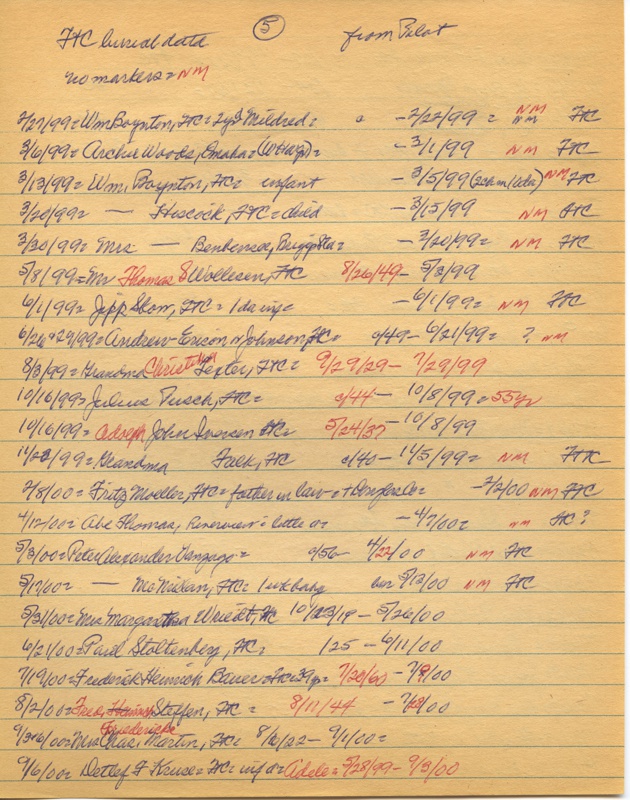 5
FtC burial data from Pilot
no markers = NM
2/27/99 = Wm Boynton, FtC = 2yd Mildred = - 2/22/99 = NM NM FtC
3/6/99 = Archie Woods, Omaha = - 3/1/99 NM FtC
3/13/99 = Wm. Boynton, FtC = infant - 3/5/99 NM FtC
3/20/99 = — Hiscock, FtC = died - 3/15/99 NM FtC
3/30/99 = Mrs — = - 3/20/99 = NM FtC
5/8/99 = Mr Thomas S Wollesen, FtC 8/26/49 - 5/3/99
6/1/99 = Jepp Stow, FtC = 1 da - 6/1/99 = NM FtC
6/26 + 29/99 = Andrew Erickson Johnson, FtC = c/49 - 6/21/99 = ? NM
8/3/99 = Grandma Christina FtC = 9/29/29 - 7/29/99
10/16/99 = Julius Pusch, FtC = c/44 - 10/8/99 = 55yr
10/16/99 = Adolph John Iversen FtC = 5/24/37 - 10/8/99
/99 = Grandma Falk, FtC c/40 - 11/5/99 = NM FtC
2/8/00 = Fritz Moeller, FtC = father in law = - 2/2/00 NM FtC
4/12/00 = Abe Thomas, = - 4/7/00 = NM FtC ?
5/3/00 = Peter Alexander = c/56 - 4/22/00 NM FtC
5/17/00 = — McMillan, FtC = 1 wk baby bur 5/13/00 NM FtC
5/31/00 = Mrs Margaretha Wriedt, FtC 10/23/19 - 5/26/00
6/21/00 = Paul Stoltenberg, FtC = 1/25 - 6/11/00
7/19/00 = Frederick Heinrich Bauer = FtC = 39y = 7/20/60 - 7/9/00
8/2/00 = Fred. Steffen, FtC = 8/11/44 - /00
Friedericke
9/3+6/00 = Mrs Chas. Martin, FtC = 8/6/22 - 9/1/00 =
9/6/00 = Detlef F Kruse = FtC = inf d = Adele = 5/28/99 - 9/3/00